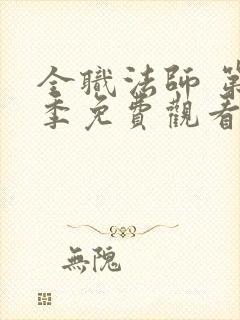 全職法師 第
季免費觀看
無隗